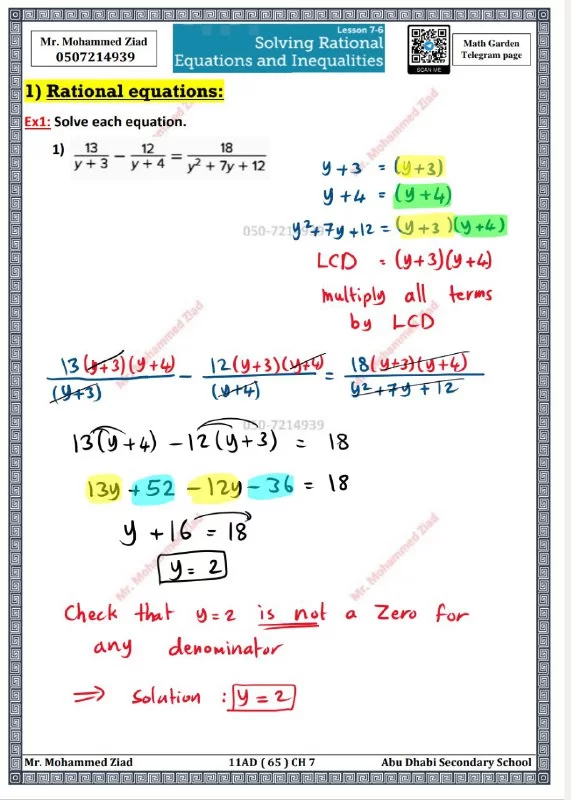 Mr. Mohammed Ziad
0507214939
Lesson 7-6
Solving Rational
Equations and Inequalities
SCAN ME
Math Garden
Telegram page
1) Rational equations:
Ex1: Solve each equation.
1) 13/(y + 3) − 12/(y + 4) = 18/(y² + 7y + 12)
y + 3 = (y+3)
y + 4 = (y+4)
y²+7y+12 = (y+3)(y+4)
LCD = (y+3)(y+4)
multiply all terms
by LCD
13(y+3)(y+4)/(y+3) − 12(y+3)(y+4)/(y+4) = 18(y+3)(y+4)/y²+7y+12
13(y+4) −12(y+3) = 18
13y +52 −12y −36 = 18
y +16 = 18
y = 2
Check that y=2 is not a Zero for
any denominator
⇒ Solution : y = 2
050-7214939
050-7214939
Mr. Mohammed Ziad
Mr. Mohammed Ziad
Mr. Mohammed Ziad
Mr. Mohammed Ziad
Mr. Mohammed Ziad
11AD ( 65 ) CH 7
Abu Dhabi Secondary School